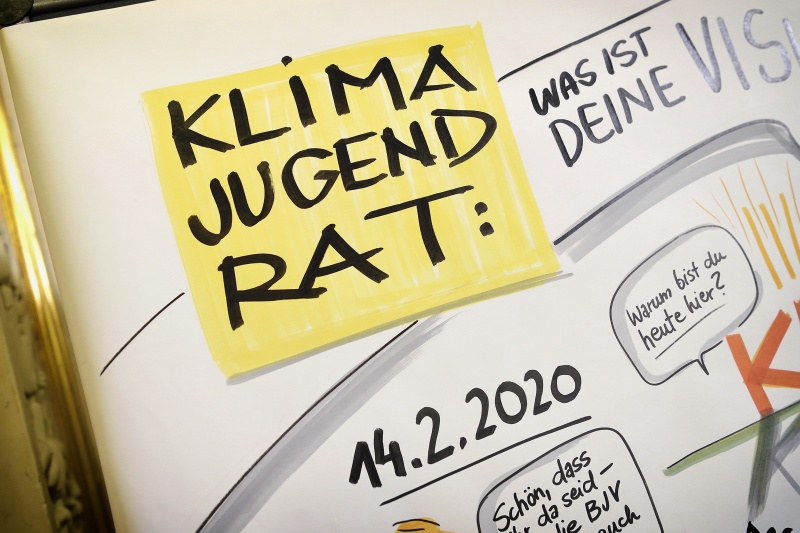 KLiMA
JUGEND
RAT:
WAS IST
DEINE VISI
Warum bist du
heute hier?
14.2.2020
Schön, dass
ihr da seid –
die BJV
auch
K